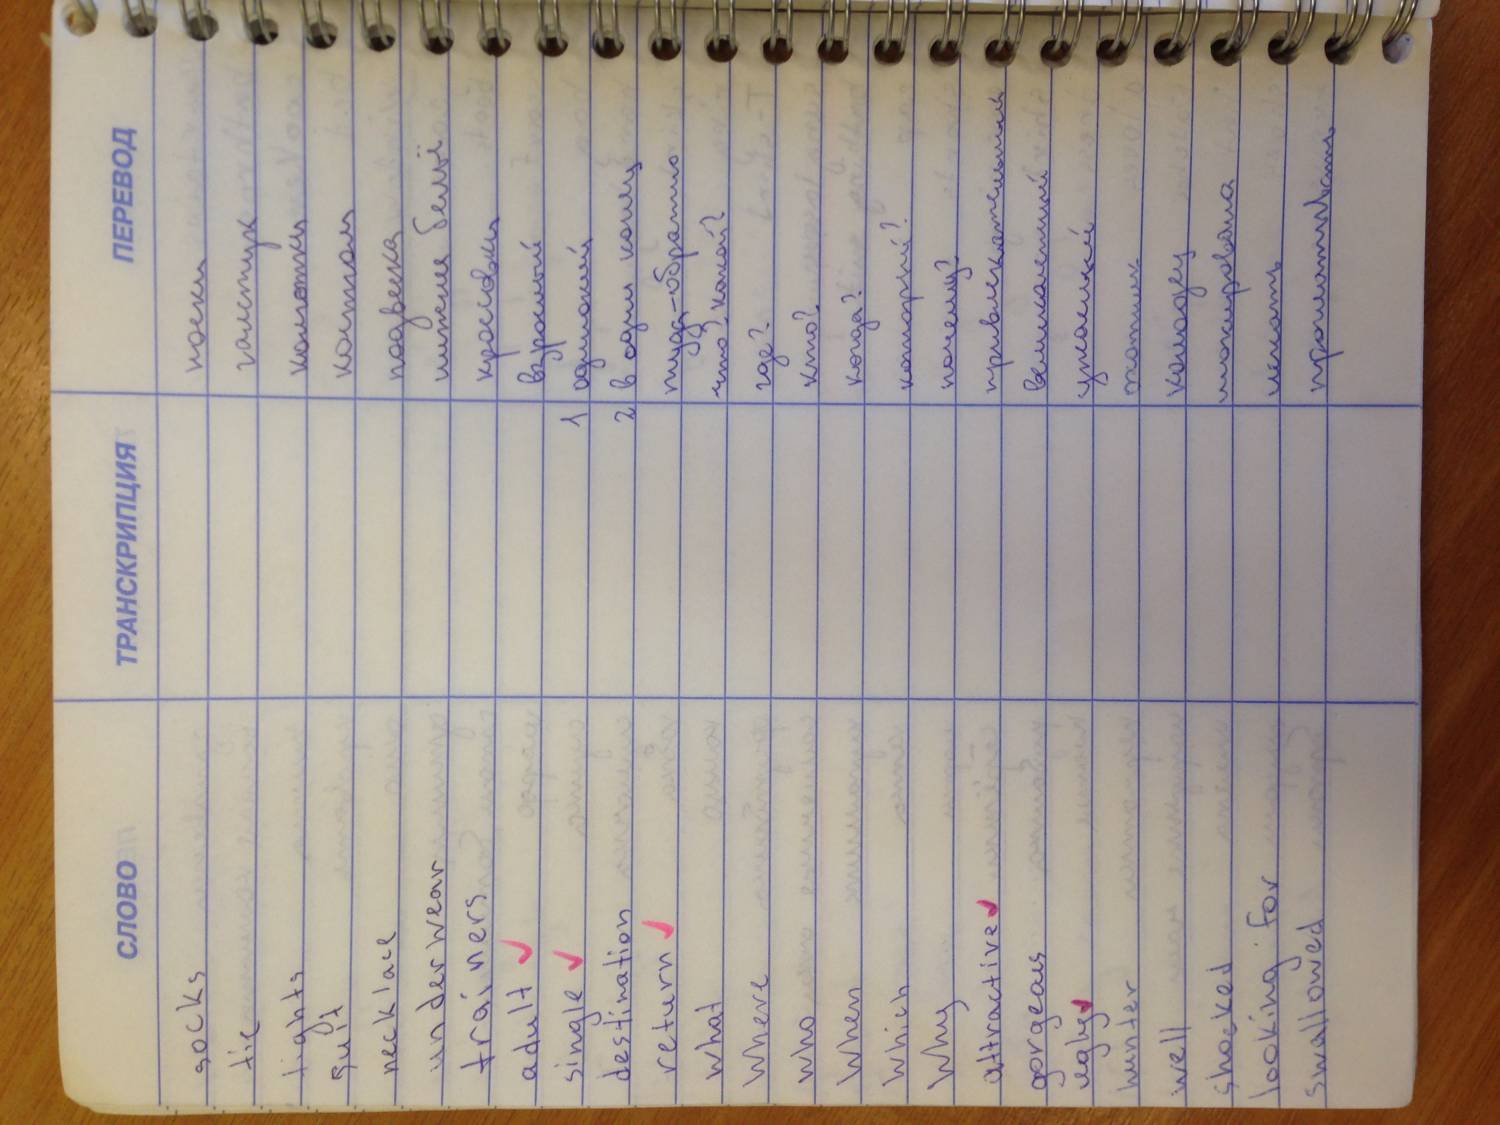 СЛОВО ТРАНСКРИПЦИЯ ПЕРЕВОД
socks носки
tie галстук
tights колготки
suit костюм
necklace подвеска
underwear нижнее бельё
trainers кросовки
adult ✓ взрослый
single ✓ 1 одинокий
destination 2 в один конец
return ✓ туда-обратно
what что? какой?
Where где?
who кто?
When когда?
which который?
Why почему?
attractive ✓ привлекательный
gorgeous великолепный
ugly ✓ ужасный
hunter
well колодец
shocked шокирована
looking for искать
swallowed проглатывать